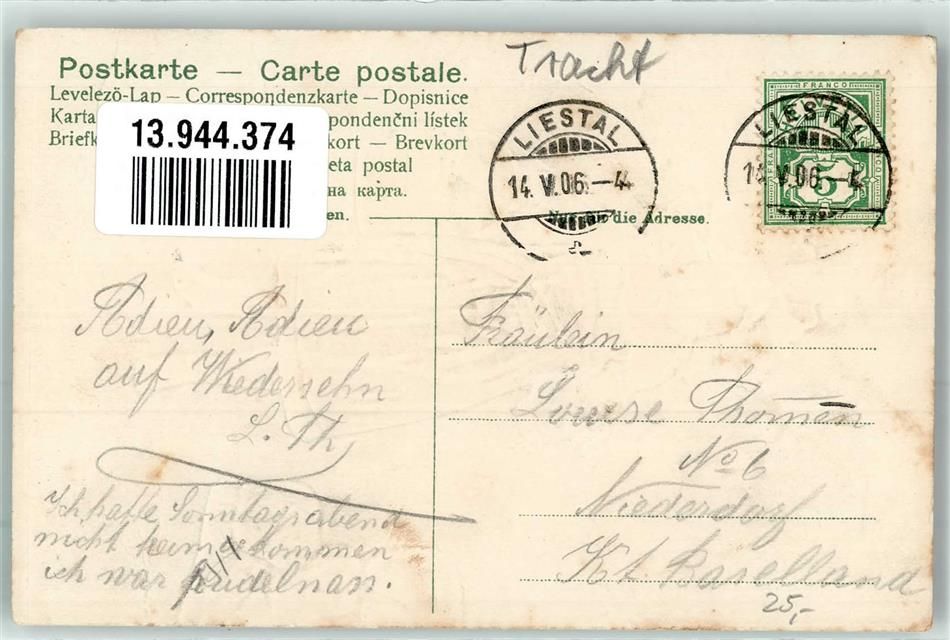 Tracht
Postkarte — Carte postale.
Levelezö-Lap — Correspondenzkarte — Dopisnice
Karta spondenčni lístek
Briefk kort — Brevkort
eta postal
на карта.
en.
13.944.374
LIESTAL
14.V.06.–4
Nur die Adresse.
FRANCO
LIESTAL
14.V.06.–4
5
Adieu, Adieu
auf Wiedersehn
L. Th
Ich hatte Sonntagsabend
nicht heimgekommen
ich war pudelnan.
Fräulein
Louise Thommen
No 6
Niederdorf
Kt. Baselland
25,-